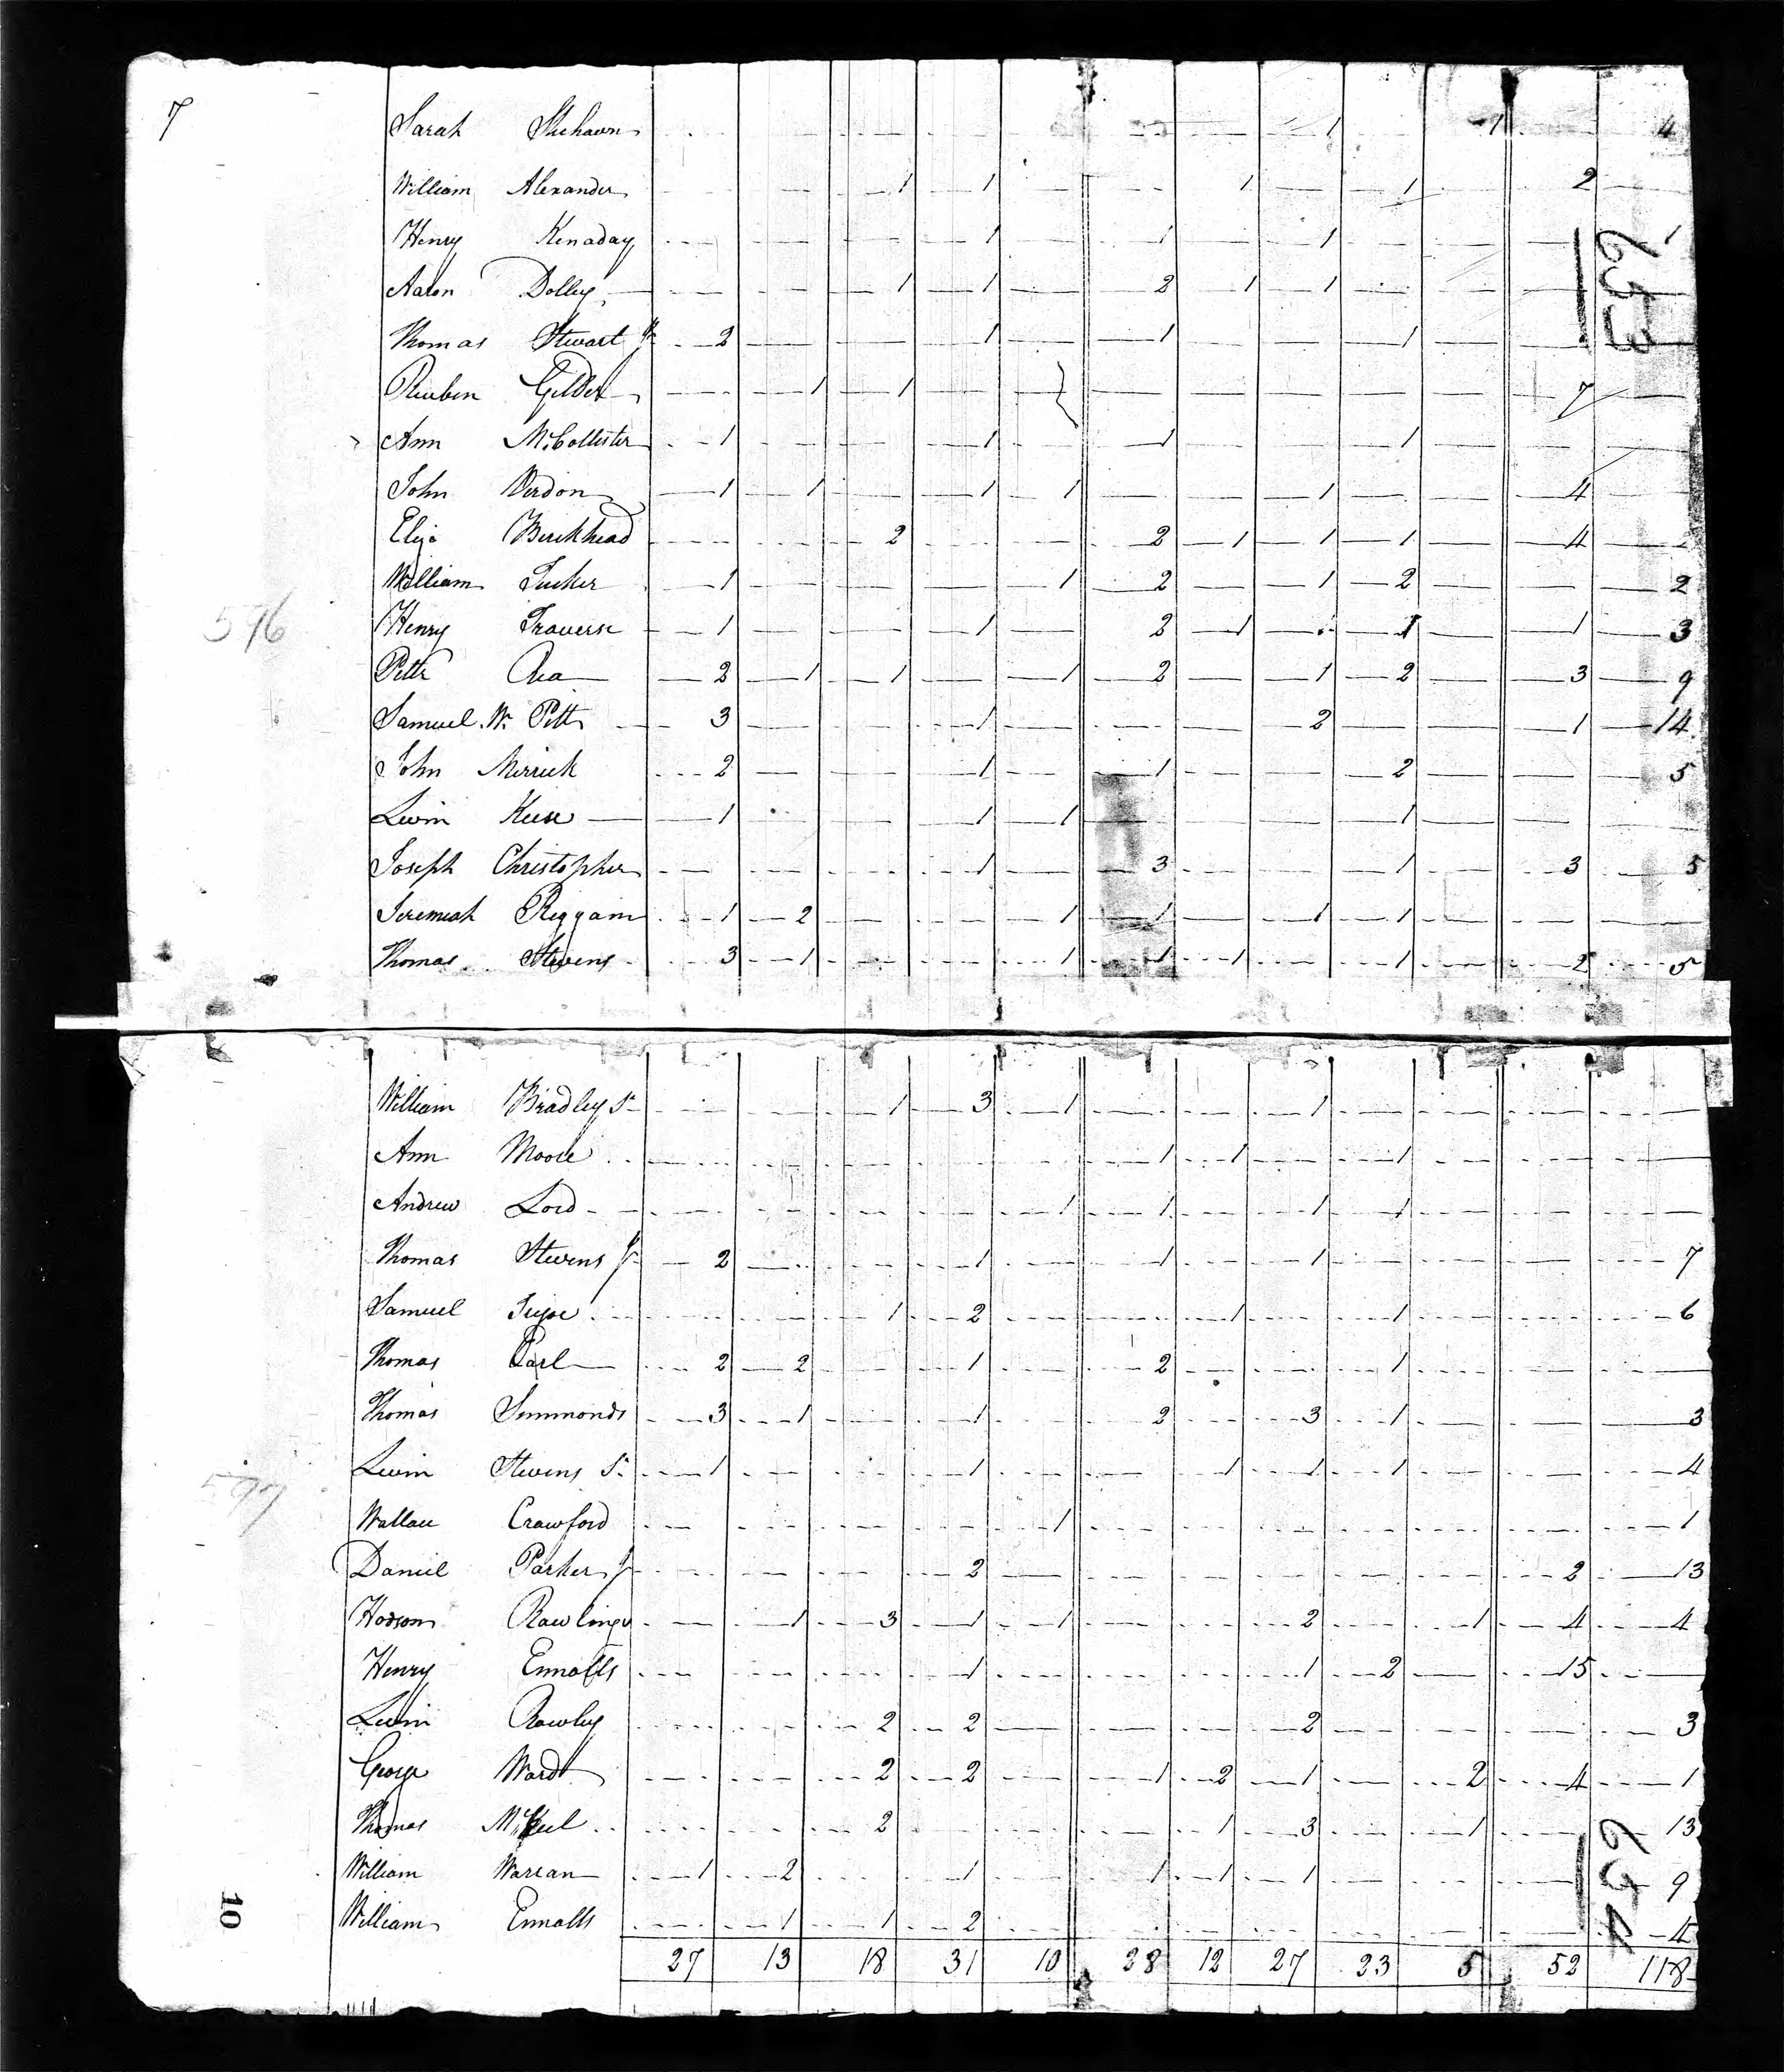 7
Sarah Shehawn 1 1 4
William Alexander 1 1 1 1 2
Henry Kenaday 1 1 1 1
653
Aaron Dolley 1 1 2 1 1
Thomas Stewart Jr 2 1 1 1
Reuben Gilder 1 1 7
Ann McCollister 1 1 1 1
John Verdon 1 1 1 1 1 4
Eliza Burkhead 2 2 1 1 1 4
William Tucker 1 1 2 1 2 2
596
Henry Traverse 1 1 2 1 1 1 3
Peter Rea 2 1 1 1 2 1 2 3 9
Samuel W. Pitt 3 1 2 1 14
John Merrick 2 1 1 2 5
Levin Keene 1 1 1 1
Joseph Christopher 1 3 1 3 5
Jeremiah Riggam 1 2 1 1 1 1
Thomas Stevens 3 1 1 1 1 1 2 5
William Bradley Sr 1 3 1 1
Ann Moore 1 1 1
Andrew Lord 1 1 1 1
Thomas Stevens Jr 2 1 1 1 7
Samuel 1 2 1 1 6
Thomas Earl 2 2 1 2 1
Thomas Simmonds 3 1 1 2 3 1 3
Levin Stevens Sr 1 1 1 1 1 4
597
Wallace Crawford 1 1
Daniel Parker Jr 2 2 13
Hodson Rawlings 1 3 1 1 2 1 4 4
Henry Ennalls 1 1 2 15
Levin Rowley 2 2 2 3
George Ward 2 2 1 2 1 2 4 1
Thomas McKeel 2 1 3 1 13
654
William Warran 1 2 1 1 1 1 9
10
William Ennalls 1 1 2 4
27 13 18 31 10 28 12 27 23 5 52 118